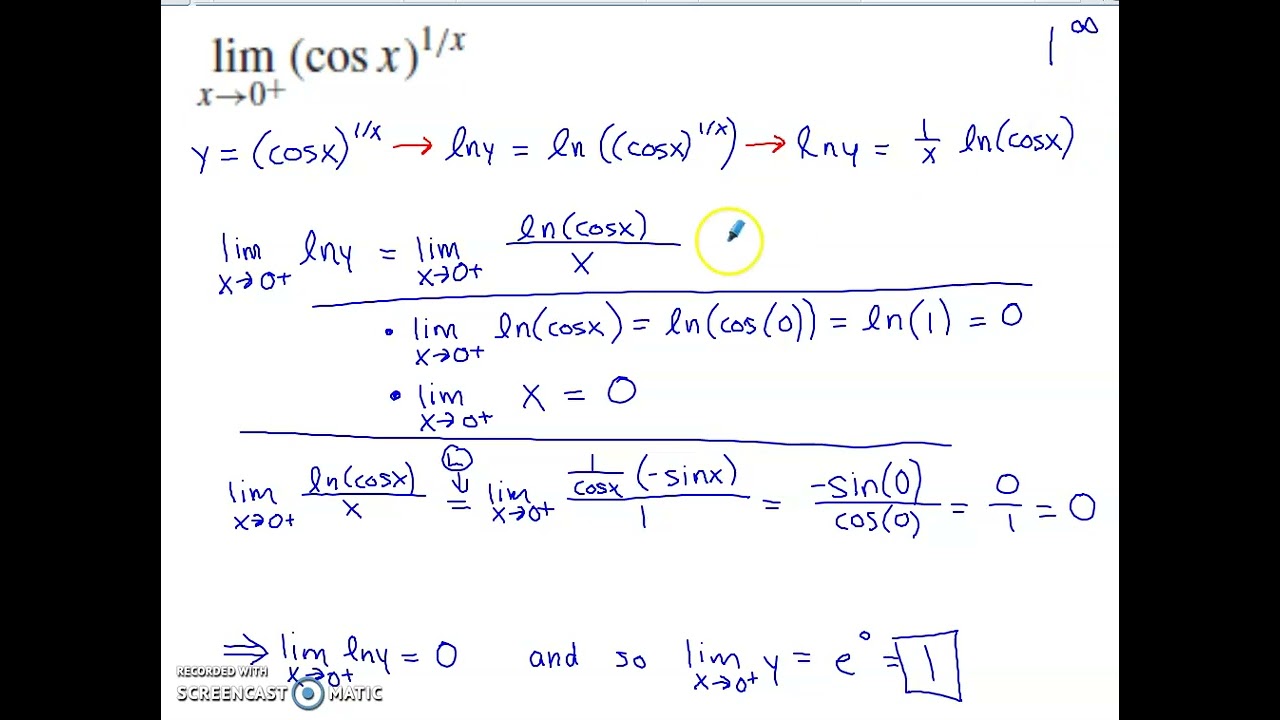 lim (cos x)^{1/x} 1^∞
x→0⁺
y = (cosx)^{1/x} → lny = ln((cosx)^{1/x}) → lny = 1/x ln(cosx)
lim_{x→0+} lny = lim_{x→0+} ln(cosx)/x
• lim_{x→0+} ln(cosx) = ln(cos(0)) = ln(1) = 0
• lim_{x→0+} x = 0
lim_{x→0+} ln(cosx)/x =^{L} lim_{x→0+} (1/cosx (-sinx))/1 = -sin(0)/cos(0) = 0/1 = 0
⇒ lim_{x→0+} lny = 0 and so lim_{x→0+} y = e^0 = 1
RECORDED WITH
SCREENCAST MATIC